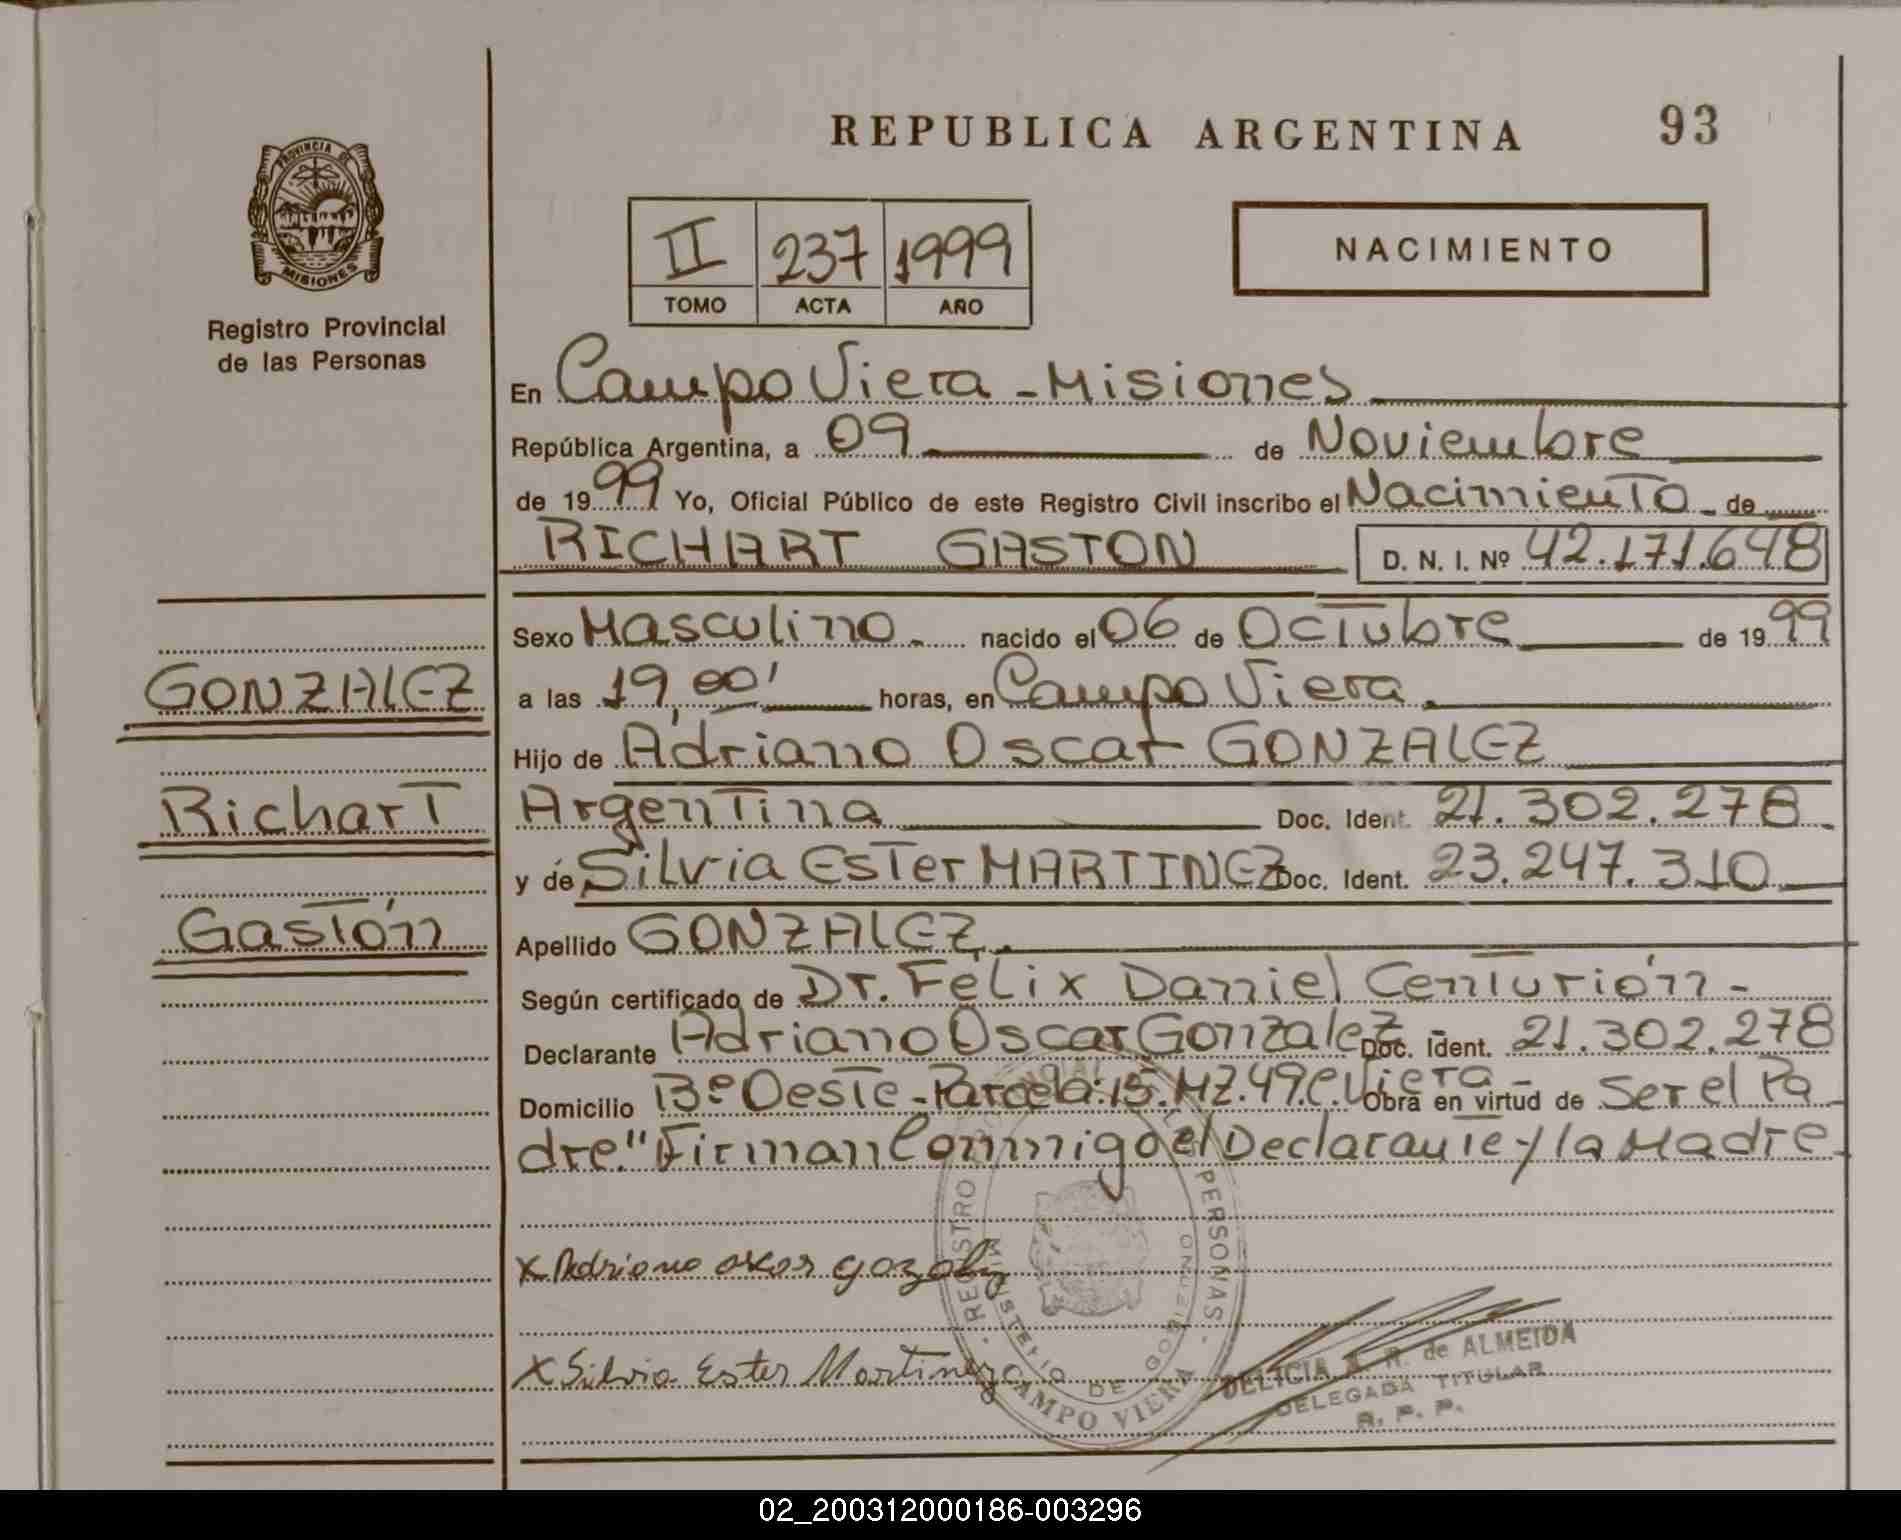 REPUBLICA ARGENTINA 93
PROVINCIA DE
MISIONES
Registro Provincial
de las Personas
II 237 1999
TOMO ACTA AÑO
NACIMIENTO
En Campo Viera - Misiones
República Argentina, a 09 de Noviembre
de 1999 Yo, Oficial Público de este Registro Civil inscribo el Nacimiento - de
RICHART GASTON D. N. I. Nº 42.171.648
Sexo Masculino. nacido el 06 de Octubre de 1999
GONZALEZ
a las 19,00' horas, en Campo Viera.
Hijo de Adriano Oscar GONZALEZ
Richart
Argentina Doc. Ident. 21.302.278
y de Silvia Ester MARTINEZ Doc. Ident. 23.247.310
Gastón
Apellido GONZALEZ.
Según certificado de Dr. Felix Daniel Centurión -
Declarante Adriano Oscar Gonzalez - Doc. Ident. 21.302.278
Domicilio Bº Oeste - Parcela: 15. MZ. 49. C. Viera - Obra en virtud de Ser el Pa
dre." Firman Conmigo el Declarante y la Madre.
x Adriano oscar gozalez
x Silvia Ester Martinez
REGISTRO PROVINCIAL DE LAS PERSONAS
MINISTERIO DE GOBIERNO
CAMPO VIERA
DELICIA R. de ALMEIDA
DELEGADA TITULAR
R. P. P.
02_200312000186-003296